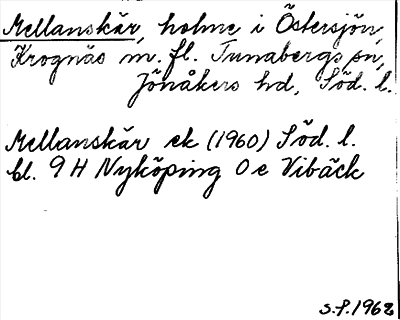 Mellanskär, holme i Östersjön,
Krognäs m. fl. Tunabergs sn,
Jönåkers hd, Söd. l.
Mellanskär ek (1960) Söd. l.
bl. 9 H Nyköping 0 e Vibäck
S.P. 1962